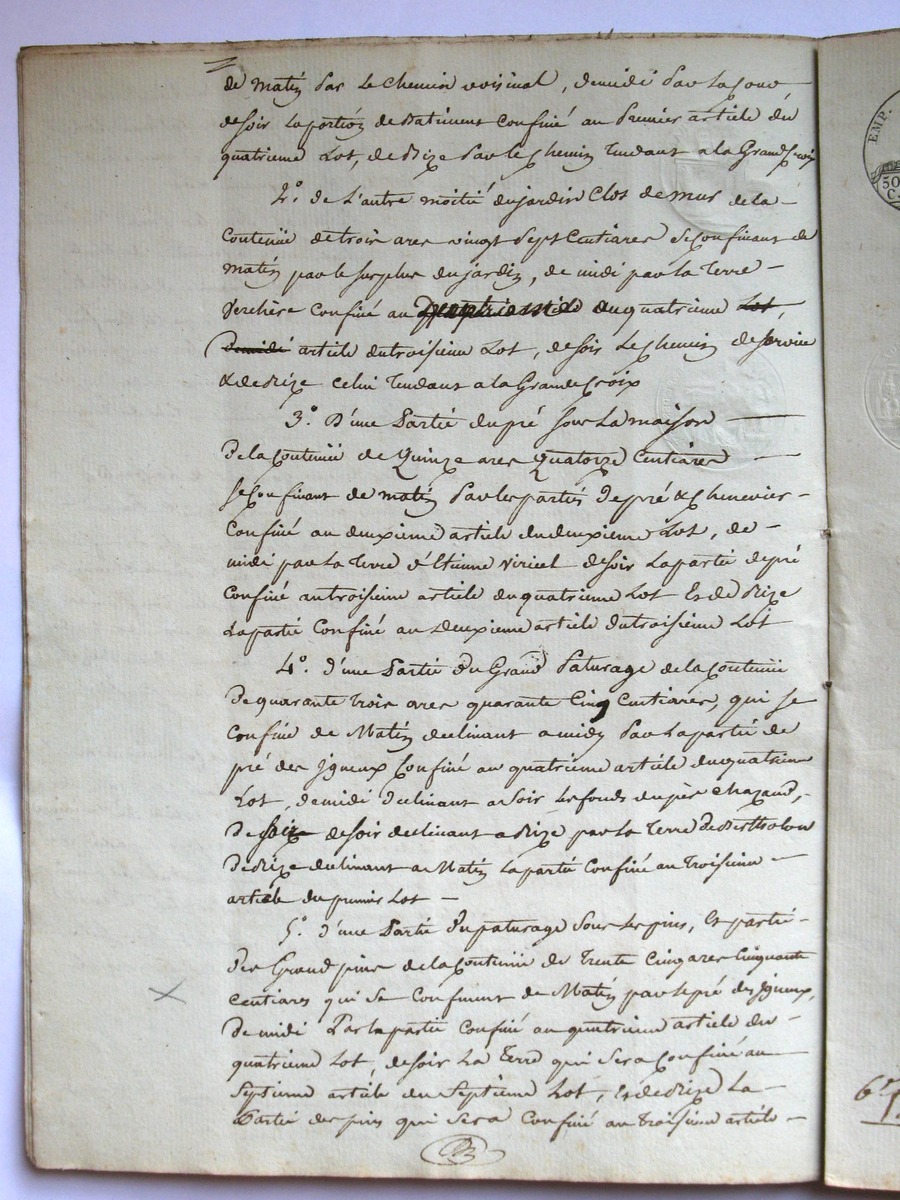 de matin par le chemin voisinal, de midi par la Cour
de soir la portion de Batiment confiné au premier article du
quatrieme Lot, de Bize par le chemin tendant a la Grand Croix
2°. de L'autre moitié du jardin Clos de mur de la
Contenüe de trois ares vingt Sept Centiares Se Confinant de
matin par le surplus du jardin, de midi par la Terre
Verchère confiné au du quatrieme Lot,
De midi article du troisieme Lot, de soir le chemin de service
& de Bize celui tendant a la Grande Croix
3°. D'une Partie du pré sous la maison
De la Contenüe de Quinze ares Quatorze Centiares
se Confinant de matin par les parties de pré & chenevier
Confiné au deuxieme article du deuxieme Lot, de
midi par la terre d'Etienne Viricel de soir la partie de pré
Confiné au troisieme article du quatrieme Lot Et de Bize
La partie Confiné au deuxieme article du troisieme Lot
4°. d'une Partie Du Grand Paturage de la Contenüe
De quarante trois ares quarante Cinq Centiares, qui se
Confine de Matin declinant a midy par la partie de
pré des Igneux Confiné au quatrieme article du quatrieme
Lot, de midi declinant a soir les fonds du père Chazaud,
De soir de soir declinant a Bize par la Terre de Bertholon
De Bize declinant a Matin la partie Confiné au troisieme
article du premier Lot
5°. d'une Partie Du paturage sous les pins, Et partie
Des Grand pins de la Contenüe de Trente Cinq ares Cinquante
Centiares qui se Confinent de Matin par le pré des Igneux,
De midi Par la partie Confiné au quatrieme article du
quatrieme Lot, de soir La Terre qui sera Confiné au
Septieme article du Septieme Lot, Et de Bize La
Partie des pins qui sera Confiné au troisieme article
EMP.
50
C.